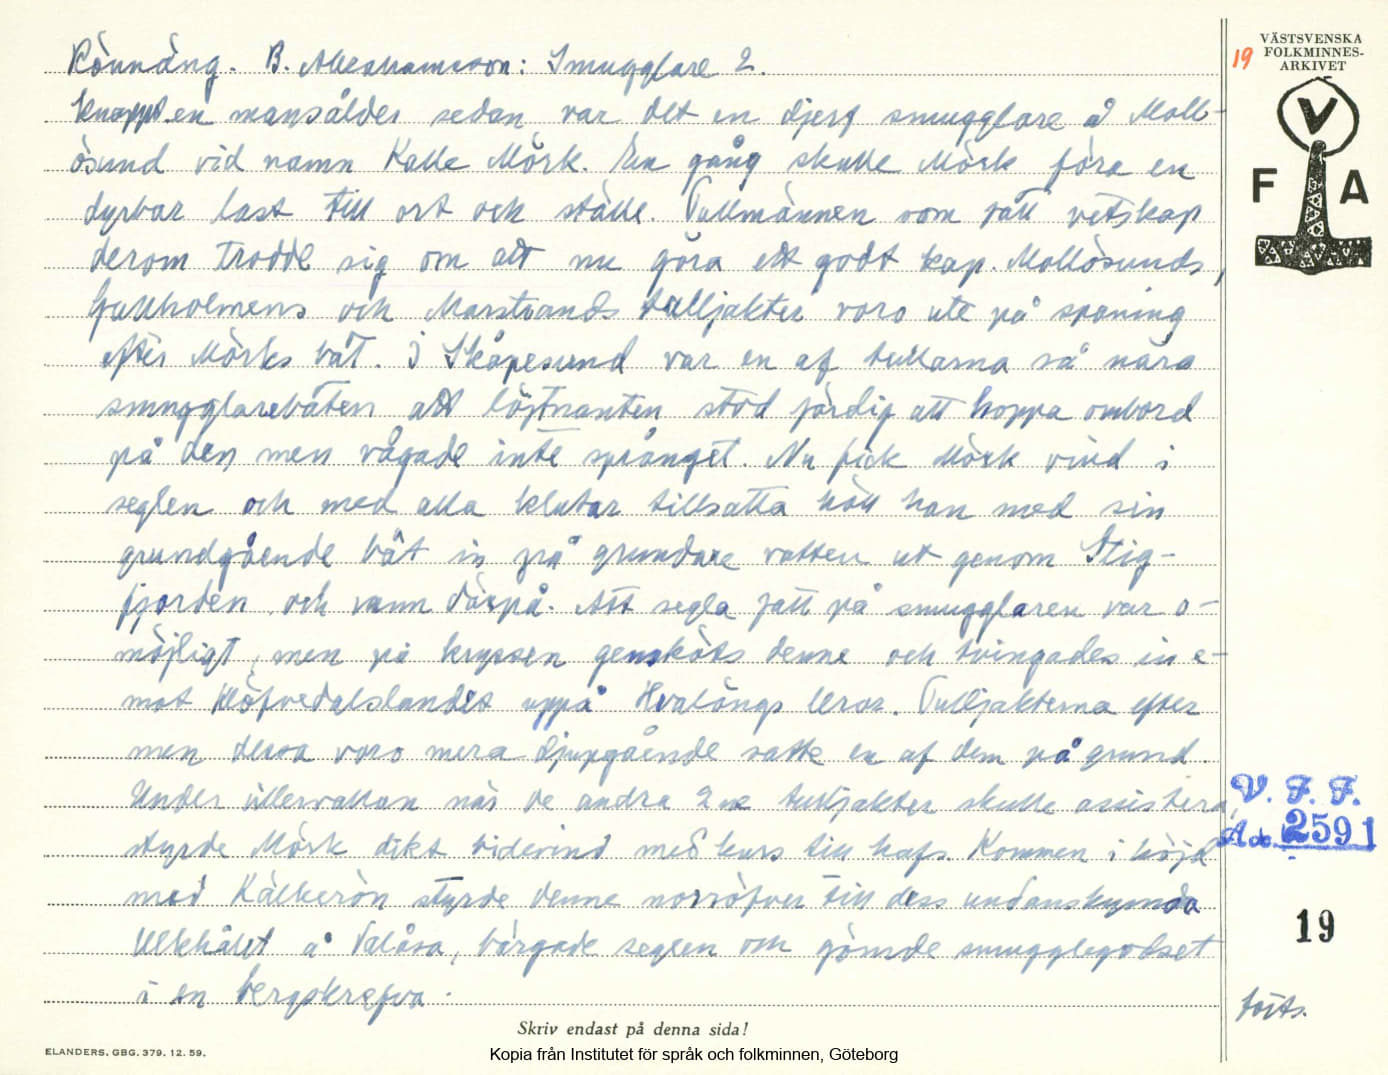 Rönnäng. B. Abrahamsson: Smugglare 2.
Knappt en mansålder sedan var det en djerf smugglare å Moll-
ösund vid namn Kalle Mörk. En gång skulle Mörk föra en
dyrbar last till ort och ställe. Tullmännen som fått vetskap
derom trodde sig om att nu göra ett godt kap. Mollösunds,
Gullholmens och Marstrands tulljakter voro ute på spaning
efter Mörks båt. I Skåpesund var en af tullarna så nära
smugglarebåten att löjtnanten stod färdig att hoppa ombord
på den men vågade inte språnget. Nu fick Mörk vind i
seglen och med alla klutar tillsatta höll han med sin
grundgående båt in på grundare vatten ut genom Stig-
fjorden och vann därpå. Att segla fatt på smugglaren var o-
möjligt, men på kryssen gensköts denne och tvingades in e-
mot Klöfvedalslandet uppå Hvalöngs leror. Tulljakterna efter
men dessa voro mera djupgående satte en af dem på grund.
Under villervallan när de andra 2ne tulljakter skulle assistera,
styrde Mörk dikt bidevind med kurs till hafs. Kommen i höjd
med Kälkerön styrde denne norröfver till dess undanskymda
Ulkhålet å Valåsa, bärgade seglen och gömde smugglegodset
i en bergskrefva.
Skriv endast på denna sida!
ELANDERS. GBG. 379. 12. 59.
Kopia från Institutet för språk och folkminnen, Göteborg
19
VÄSTSVENSKA
FOLKMINNES-
ARKIVET
V
F A
V. F. F.
2591
19
forts.